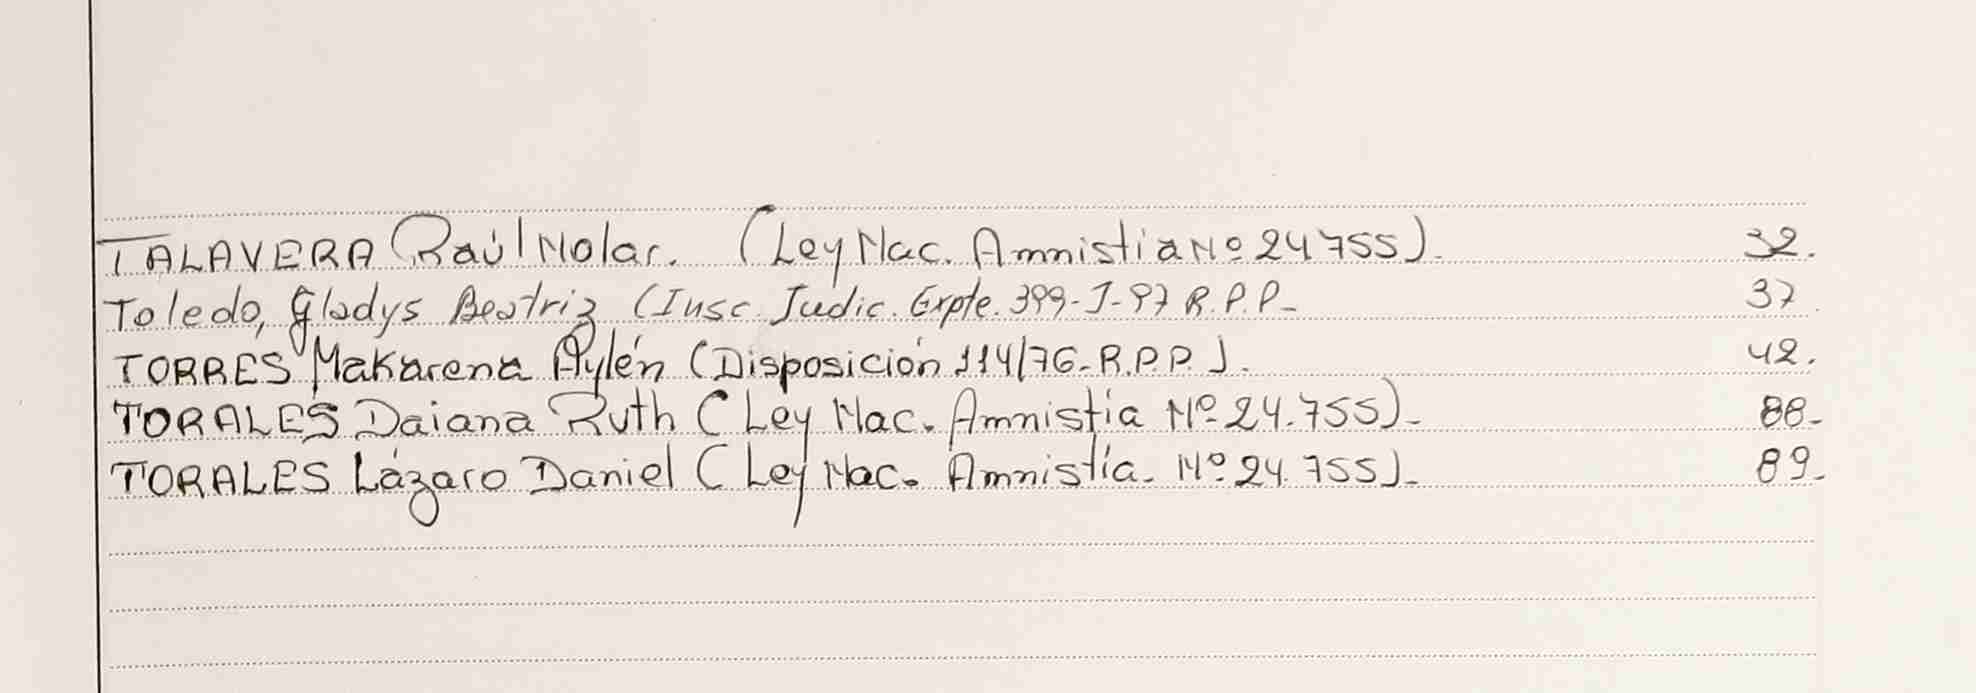 TALAVERA Raúl Nolar. (Ley Nac. Amnistia Nº 24755). 32.
Toledo, Gladys Beatriz (Insc. Judic. Expte. 399-J-97 R.P.P- 37
TORRES Makarena Aylén (Disposición 114/76-R.P.P.). 42.
TORALES Daiana Ruth (Ley Nac. Amnistía Nº 24.755)- 88-
TORALES Lázaro Daniel (Ley Nac. Amnistía. Nº 24.755)- 89-